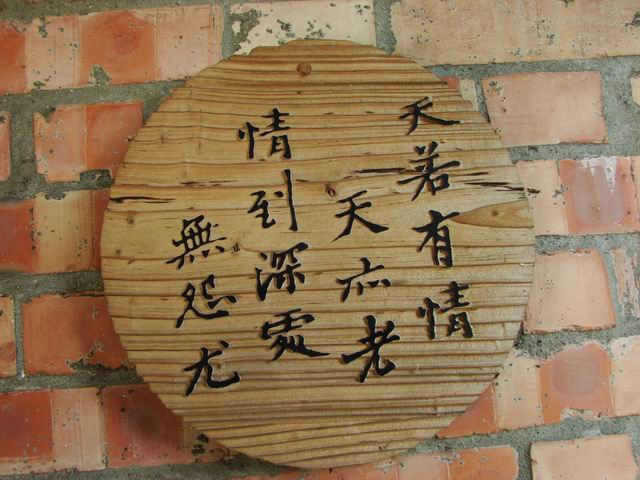 天若有情
天亦老
情到深處
無怨尤